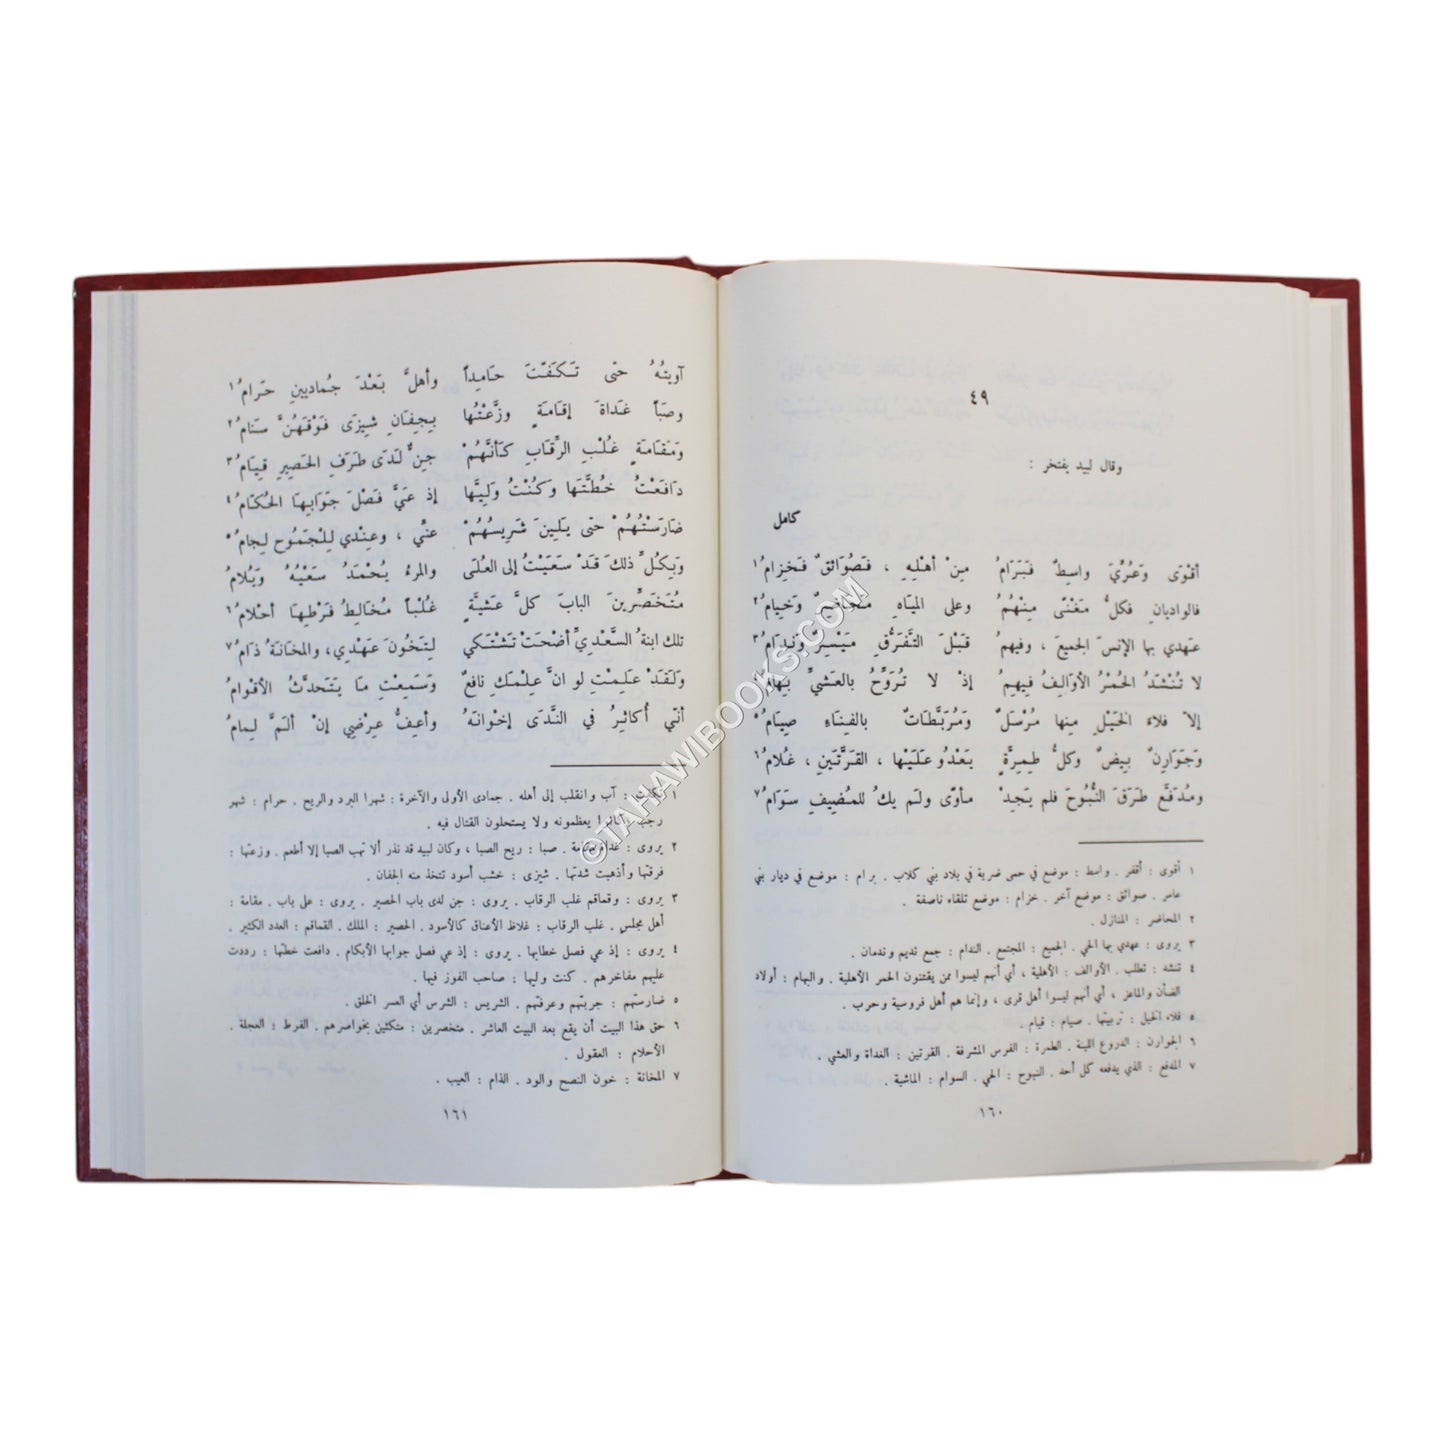 ٤٩
وقال لبيد يفتخر :
كامل
أقْوَى وَعُرِّيَ واسِطٌ فَبَرَامُ مِنْ أهْلِهِ ، فَصُوَائقٌ فَخِزامُ ١
فالواديانِ فكلُّ مَغْنًى مِنْهُمُ وعلى المياهِ مَحاضِرٌ وَخِيامُ ٢
عهدي بها الإنسَ الجميعَ ، وفيهمُ قَبْلَ التّفَرُّقِ مَيْسِرٌ وَنِدامُ ٣
لا تُنْشَدُ الحُمْرُ الأوَالِفُ فيهِمُ إذْ لا تُرَوَّحُ بالعَشيِّ بِهَامُ
إلاّ فلاءَ الخَيْلِ مِنها مُرْسَلٌ وَمُرَبَّطاتٌ بالفِناءِ صِيَامُ ٥
وَجَوَارِنٌ بِيضٌ وكلُّ طِمِرَّةٍ يَعْدُو عَلَيْها ، القَرَّتَينِ ، غُلامُ ٦
ومُدَفَّعٌ طَرَقَ النُّبوحَ فلم يَجِدْ مأوًى ولم يكُ للمُضِيفِ سَوَامُ ٧
١ أقوى : أقفر . واسط : موضع في حمى ضرية في بلاد بني كلاب . برام : موضع في ديار بني
عامر . صوائق : موضع آخر . خزام : موضع تلقاء ناصفة .
٢ المحاضر : المنازل .
٣ يروى : عهدي بها الحي . الجميع : المجتمع . الندام : جمع نديم وندمان .
٤ تنشد : تطلب . الأوالف : الأهلية ، أي أنهم ليسوا ممن يقتنون الحمر الأهلية . والبهام : أولاد
الضأن والماعز ، أي أنهم ليسوا أهل قرى ، وإنما هم أهل فروسية وحرب .
٥ فلاء الخيل : تربيتها . صيام : قيام .
٦ الجوارن : الدروع اللينة . الطمرة : الفرس المشرفة . القرتين : الغداة والعشي .
٧ المدفع : الذي يدفعه كل أحد . النبوح : الحي . السوام : الماشية .
١٦٠
آويتُهُ حتى تَكَفّتَ حَامِداً وأهلَّ بَعْدَ جُماديينِ حَرامُ ١
وصَباً غَداةَ إقامَةٍ وزَّعْتُها بِجِفانِ شِيزَى فَوْقَهُنَّ سَنامُ ٢
وَمَقامَةٍ غُلْبِ الرِّقابِ كَأنَّهُمْ جِنٌّ لَدَى طَرَفِ الحَصِيرِ قِيَامُ ٣
دَافَعْتُ خُطَّتَها وَكُنْتُ وَلِيَّها إذ عَيَّ فَصْلَ جَوَابِها الحُكّامُ ٤
ضارَسْتُهُمْ حتى يَلِينَ شَرِيسُهُمْ عنّي ، وعِنْدي لِلْجَمُوحِ لِجامُ ٥
وَبِكُلِّ ذلكَ قَدْ سَعَيْتُ إلى العُلَى والمرءُ يُحْمَدُ سَعْيُهُ وَيُلامُ
مُتَخَصِّرِينَ البابَ كلَّ عَشيّةٍ غُلْباً مُخَالِطُ فَرْطِها أحْلامُ ٦
تلك ابنةُ السَّعْدِيِّ أضْحَتْ تَشْتَكي لِتَخُونَ عَهْدِي، والمخانَةُ ذامُ ٧
وَلَقَدْ عَلِمْتِ لو انَّ عِلمَكِ نافعٌ وَسَمِعْتِ ما يَتَحدَّثُ الأقْوامُ
أنّي أُكاثِرُ في النَّدَى إخْوانَهُ وأعِفُّ عِرْضِي إنْ ألَمَّ لِمامُ
١ تكفت : آب وانقلب إلى أهله . جمادى الأولى والآخرة : شهرا البرد والريح . حرام : شهر
رجب وكانوا يعظمونه ولا يستحلون القتال فيه .
٢ يروى : غداة مقامة . صبا : ريح الصبا ، وكان لبيد قد نذر ألا تهب الصبا إلا أطعم . وزعتها :
فرقتها وأذهبت شدتها . شيزى : خشب أسود تتخذ منه الجفان .
٣ يروى : وقماقم غلب الرقاب . يروى : جن لدى باب الحصير . يروى : على باب . مقامة :
أهل مجلس . غلب الرقاب : غلاظ الأعناق كالأسود . الحصير : الملك . القماقم : العدد الكثير .
٤ يروى : إذ عي فصل خطابها . يروى : إذ عي فصل جوابها الأبكام . دافعت خطتها : رددت
عليهم مفاخرهم . كنت وليها : صاحب الفوز فيها .
٥ ضارستهم : جربتهم وعرفتهم . الشريس : الشرس أي العسر الخلق .
٦ حق هذا البيت أن يقع بعد البيت العاشر . متخصرين : متكئين بخواصرهم . الفرط : العجلة .
الأحلام : العقول .
٧ المخانة : خون النصح والود . الذام : العيب .
١٦١
©TAHAWIBOOKS.COM